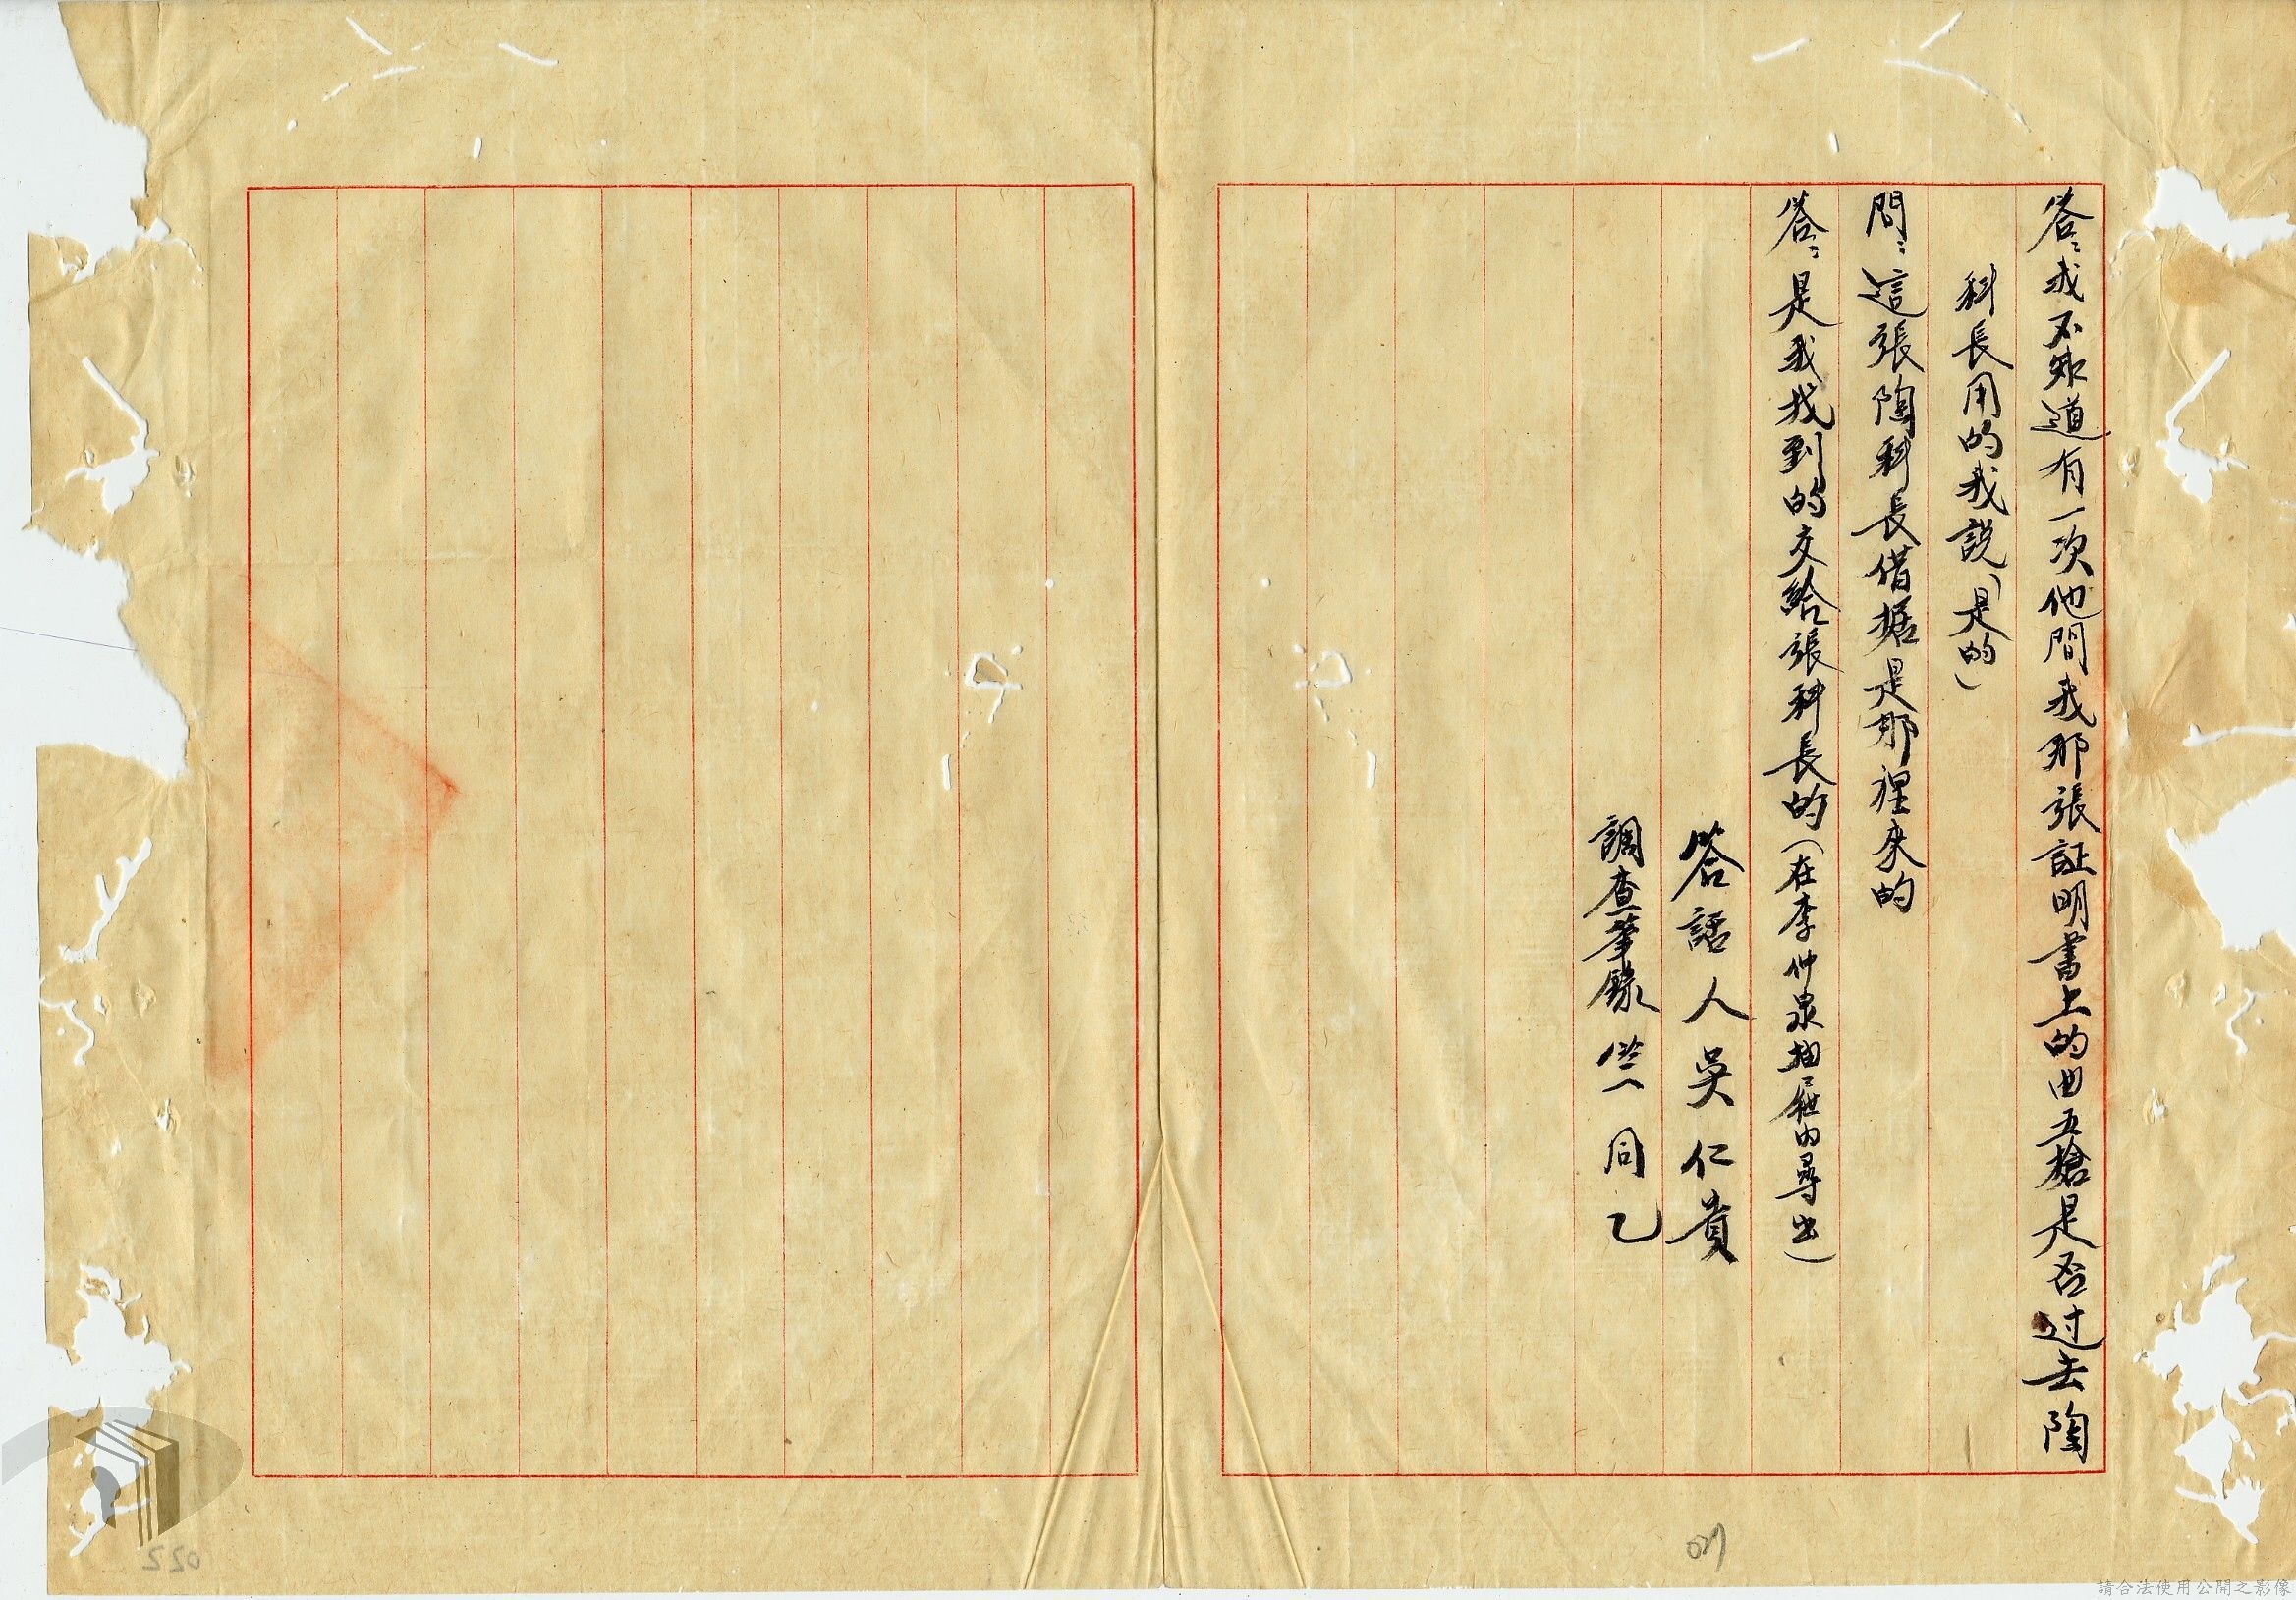 答：我不知道有一次他問我那張証明書上的曲五槍是否过去陶
科長用的我說（是的）
問：這張陶科長借据是那裡來的
答：是我找到的交給張科長的（在李仲泉抽屜內尋出）
答話人吳仁貴
調查筆錄 同乙
021
022
請合法使用公開之影像